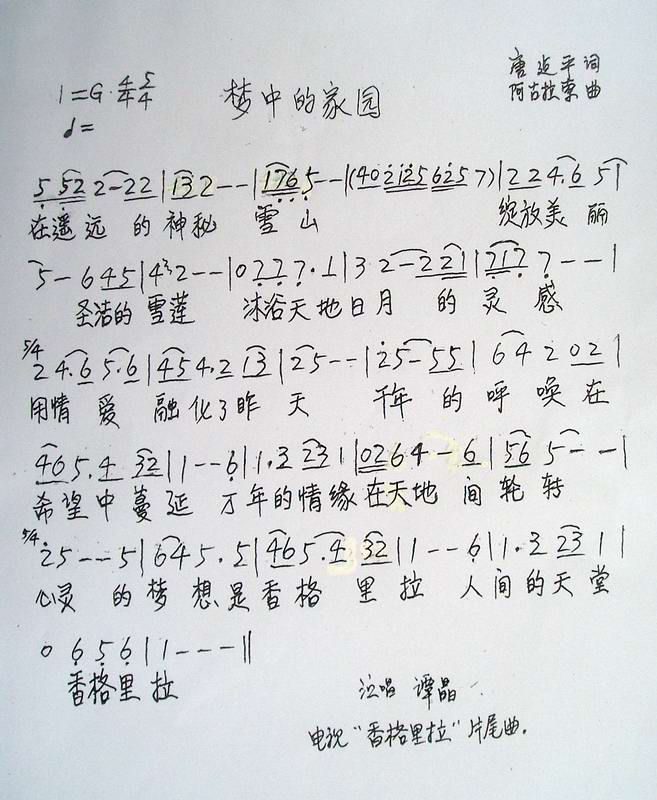 1=G 4/4 5/4
梦中的家园
唐 平 词
阿古拉泰 曲
♩=
5 52 2-22|132--|1765--|(4021256257)|224.6 51|
在遥远 的神秘 雪山 绽放美丽
5-645|432--|0777.1|32-221|2177--|
圣洁的雪莲 沐浴天地日月 的灵感
5/4
24.65.6|454.213|25--|25-55|64202|
用情爱 融化了昨天 千年的呼唤在
465.432|1--6|1.3231|0264-6|565--|
希望中蔓延 万年的情缘在天地间轮转
5/4
25--5|645.5|465.432|1--6|1.3231|
心灵的梦想是香格里拉 人间的天堂
0656|1---‖
香格里拉
演唱 谭晶
电视“香格里拉”片尾曲.